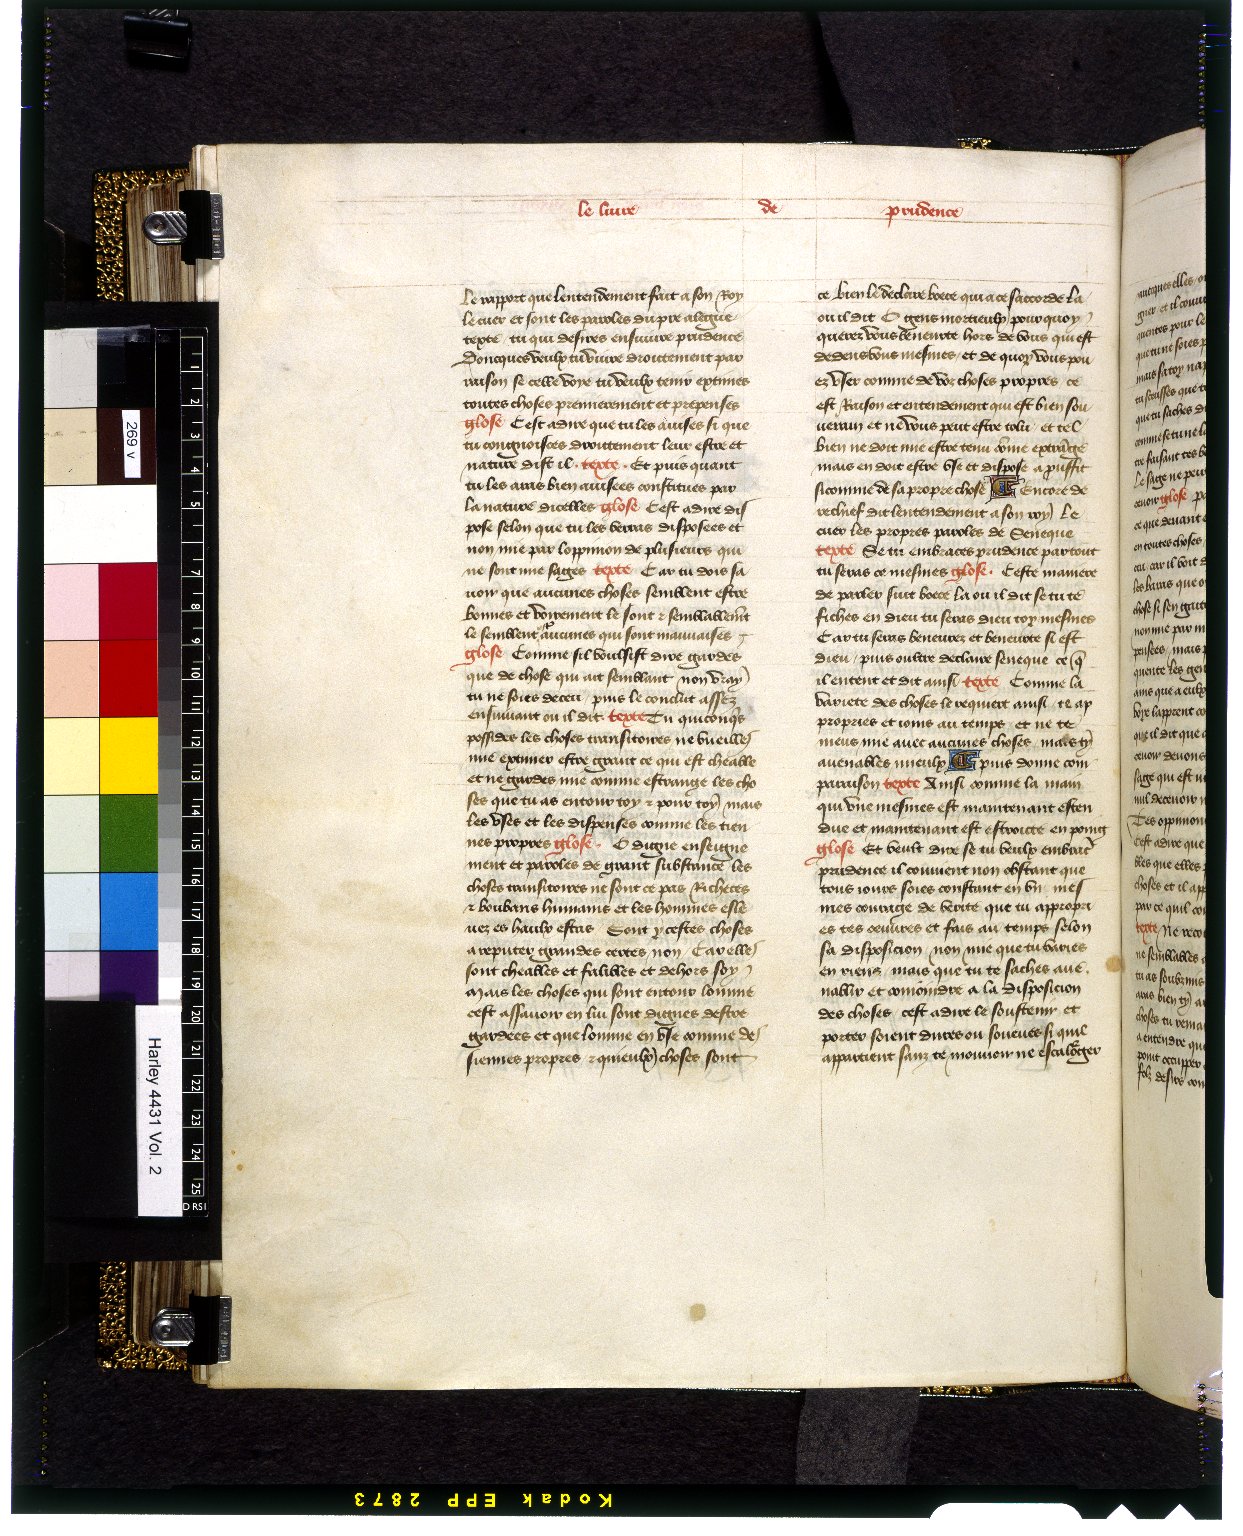 le liure de prudence
le rapport que lentendement fait a son Roy
le cuer et sont les paroles du pre alegue
texte tu qui desires ensuiure prudence
Doncques veulx tu viure droittement par
raison se celle voye tu veulx tenir extimes
toutes choses premierement et prepenses
glose Cest a dire que tu les auises si que
tu congnoisces droittement leur estre et
nature dist il . texte . Et puis quant
tu les aras bien auisees constitues par
la nature dicelles glose Cest a dire dis
pose selon que tu les verras disposees et
non mie par loppinion de plusieurs qui
ne sont mie sages texte Car tu dois sa
uoir que aucunes choses semblent estre
bonnes et voirement le sont et semblablemt
le semblent aucunes qui sont mauuaises
glose Comme sil voulsist dire gardes
que de chose qui ait semblant non vray
tu ne soies deceu / puis le conclut assez
ensuiuant ou il dit texte Tu quiconqs
possides les choses transitoires ne vueilles
mie extimer estre grant ce qui est cheable
et ne gardes mie comme estrange les cho
ses que tu as entour toy et pour toy mais
les vses et les dispenses comme les tien
nes propres glose . O digne enseigne
ment et paroles de grant substance les
choses transitoires ne sont ce pas Richeces
et boubans humains et les hommes esle
uez es haulx estas Sont ycestes choses
a reputer grandes certes non / Car elles
sont cheables et falibles et dehors soy
Mais les choses qui sont entour lomme
cest assauoir en lui sont dignes destre
gardees et que lomme en vse comme de
siennes propres et quieulx choses sont
ce bien le declaire boece qui a ce saccorde la
ou il dit O gens mortieulx pourquoy
querez vous beneurte hors de vous qui est
dedens vous mesmes et de quoy vous pou
ez vser comme de voz choses propres ce
est Raison et entendement qui est bien sou
uerain et ne vous peut estre tolu et tel
bien ne doit mie estre tenu cōme extrāge
mais en doit estre vse et dispose a prouffit
si comme de sa propre chose Encore de
rechief dit lentendement a son roy le
cuer les propres paroles de Seneque
texte Se tu embraces prudence partout
tu seras ce mesmes glose . Ceste maniere
de parler suit boece la ou il dit se tu te
fiches en dieu tu seras dieu toy mesmes
Car tu seras beneurez et beneurte si est
dieu / puis oultre declaire seneque ce q̄
il entent et dit ainsi texte Comme la
variete des choses le requiert ainsi te ap
propries et ioins au temps et ne te
meus mie auec aucunes choses mais ty
auenables mieulx puis donne com
paraison texte Ainsi comme la main
qui vne mesmes est maintenant esten
due et maintenant est estroitte en poing
glose Et veult dire se tu veulx embrac̄
prudence il conuient non obstant que
tous iours soies constant en vn mes
mes courage de verite que tu appropri
es tes oeuures et fais au temps selon
sa disposicion non mie que tu varies
en riens mais que tu te saches aue
nablir et conioindre a la disposicion
des choses cest a dire le soustenir et
porter soient dures ou soueues si quil
appartient sanz te mouuoir ne escalorger
269 v
Harley 4431 Vol. 2
Kodak EPP 2873